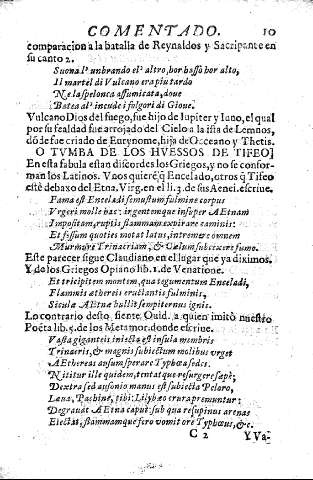 COMENTADO. 10
comparacion a la batalla de Reynaldos y Sacripante en
su canto 2.
Suona l'un brando el'altro, hor basso hor alto,
Il martel di Vulcano era piu tardo
Ne la spelonca affumicata, doue
Batea al'incude i fulgori di Gioue.
Vulcano Dios del fuego, fue hijo de Iupiter y Iuno, el qual
por su fealdad fue arrojado del Cielo a la isla de Lemnos,
dóde fue criado de Eurynome, hija de Occeano y Thetis.
O TVMBA DE LOS HVESSOS DE TIFEO]
En esta fabula estan discordes los Griegos, y no se confor-
man los Latinos. Vnos quieré q̃ Encelado, otros q̃ Tifeo
esté debaxo del Etna. Virg. en el li. 3. de sus Aenei. escriue.
Fama est Enceladi semustum fulmine corpus
Vrgeri mole hac: ingentemque insuper AEtnam
Impositam, ruptis flammam expirare caminis:
Et fessum quoties motat latus, intremere omnem
Murmure Trinacriam, & Cælum subtexere fumo.
Este parecer sigue Claudiano en el lugar que ya diximos.
Y de los Griegos Opiano lib. 1. de Venatione.
Et tricipitem montem, qua tegumentum Enceladi,
Flammis æthereis eructantis fulminis,
Siculæ AEtnæ bullit sempiternus ignis.
Lo contrario desto siente Ouid. a quien imitò nuestro
Poëta lib. 5. de los Metamor. donde escriue.
Vasta giganteis iniecta est insula membris
Trinacris, & magnis subiectum molibus vrget
AEthereas ausum sperare Typhoea sedes.
Nititur ille quidem, tentatque resurgere sæpè;
Dextra sed ausonio manus est subiecta Peloro,
Læua, Pachine, tibi: Lilybæo crura premuntur;
Degrauat AEtna caput: sub qua resupinus arenas
Electat, flammamque fero vomit ore Typhœus, &c.
C 2 Y Va-